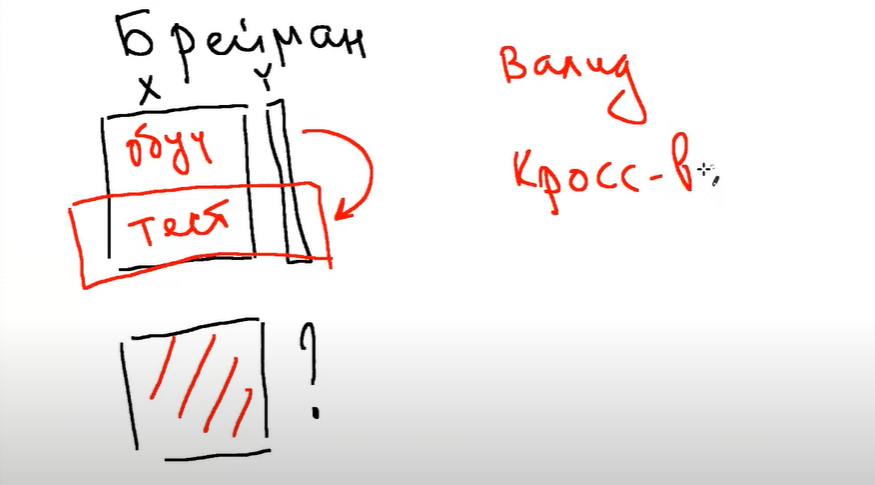 Брейман
X Y
обуч
тест
?
Валид
Кросс-в